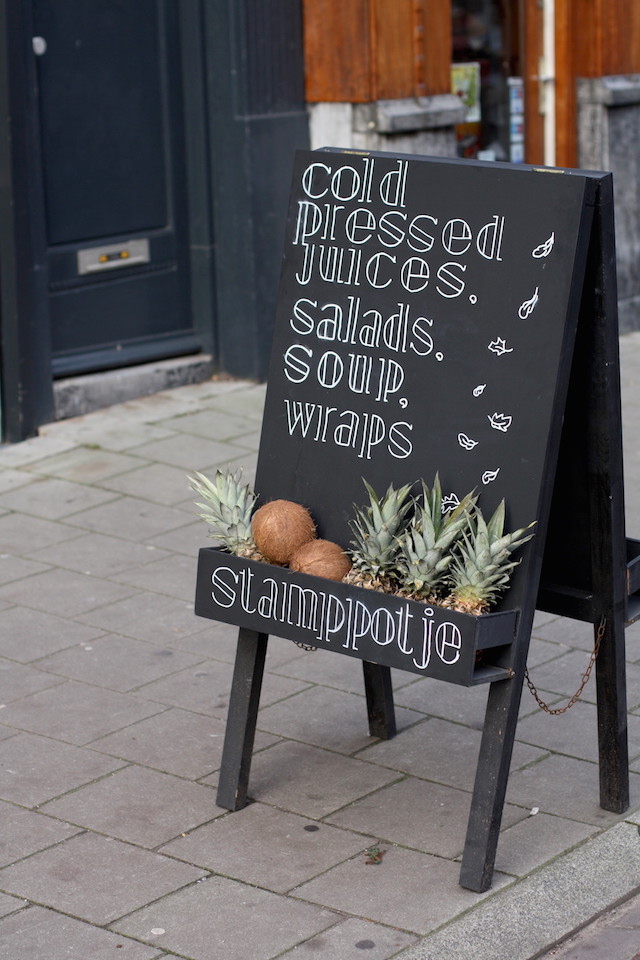 cold
pressed
juices,
salads,
soup,
wraps
stamppotje